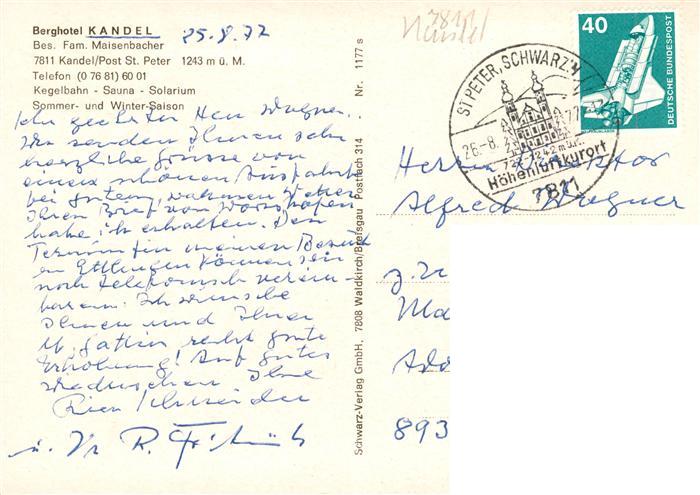 Berghotel KANDEL
Bes. Fam. Maisenbacher
7811 Kandel/Post St. Peter 1243 m ü. M.
Telefon (0 76 81) 60 01
Kegelbahn - Sauna - Solarium
Sommer- und Winter-Saison
25.8.77
Sehr geehrter Herr Wagner.
Wir senden Ihnen sehr
herzliche Grüsse von
einem schönen Ausfahrt
bei gutem, warmen Wetter
Ihren Brief von Wörishofen
habe ich erhalten. Den
Termin für meinen Besuch
in Ettlingen können wir
noch telefonisch verein-
baren. Ich wünsche
Ihnen und Ihrer
Gattin recht gute
Erholung! Auf gutes
Wiedersehen Ihre
u. Ihr R.
Schwarz-Verlag GmbH, 7808 Waldkirch/Breisgau Postfach 314 - Nr. 1177 s
7811
40
DEUTSCHE BUNDESPOST
ST PETER, SCHWARZW
26.-8. 77-12
722-1242 m ü.M.
Höhenluftkurort
7811
Herrn
Alfred Wagner
z.Zt
Ado
893